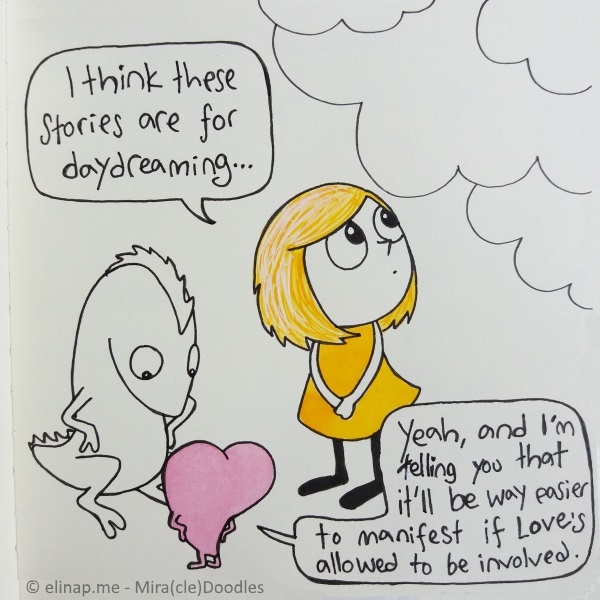 I think these
stories are for
daydreaming...
Yeah, and I'm
telling you that
it'll be way easier
to manifest if Love's
allowed to be involved.
© elinap.me - Mira(cle)Doodles